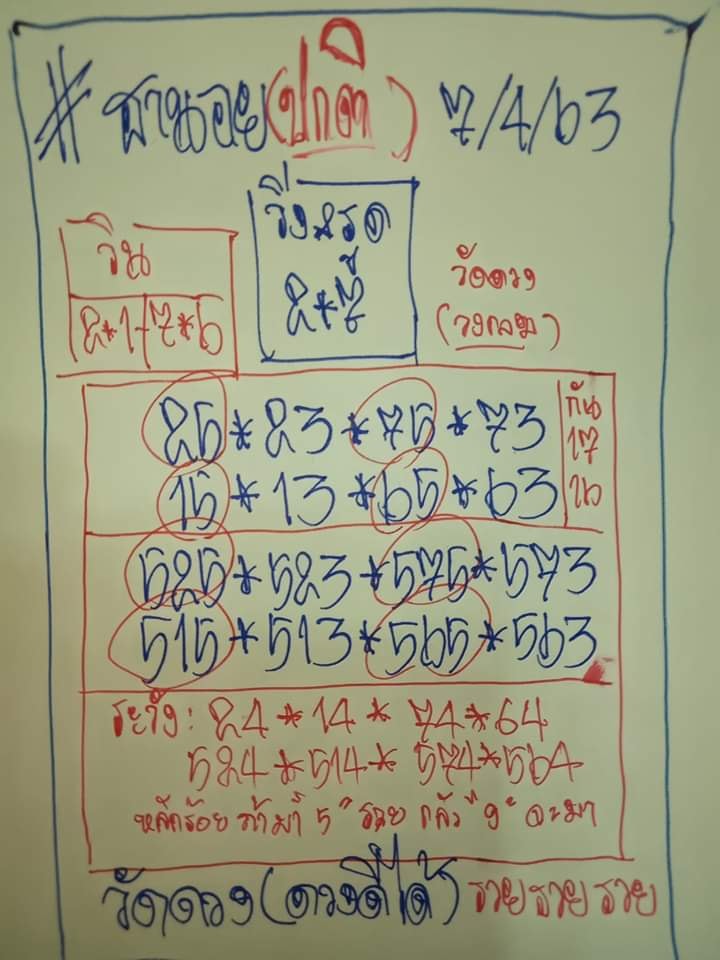 # ฮานอย (ปกติ) 7/4/63
วิ่งรูด
8*7
วิน
8*1-7*6
วัดดวง
(วงกลม)
85*83*75*73
15*13*65*63
กัน
17
น
585*583*575*573
515*513*565*563
ระวัง: 84*14*74*64
584*514*574*564
หลักร้อย ถ้ามา 5 "รวย กลัว "9" จะมา
วัดดวง (ดวงดีได้) รวย รวย รวย